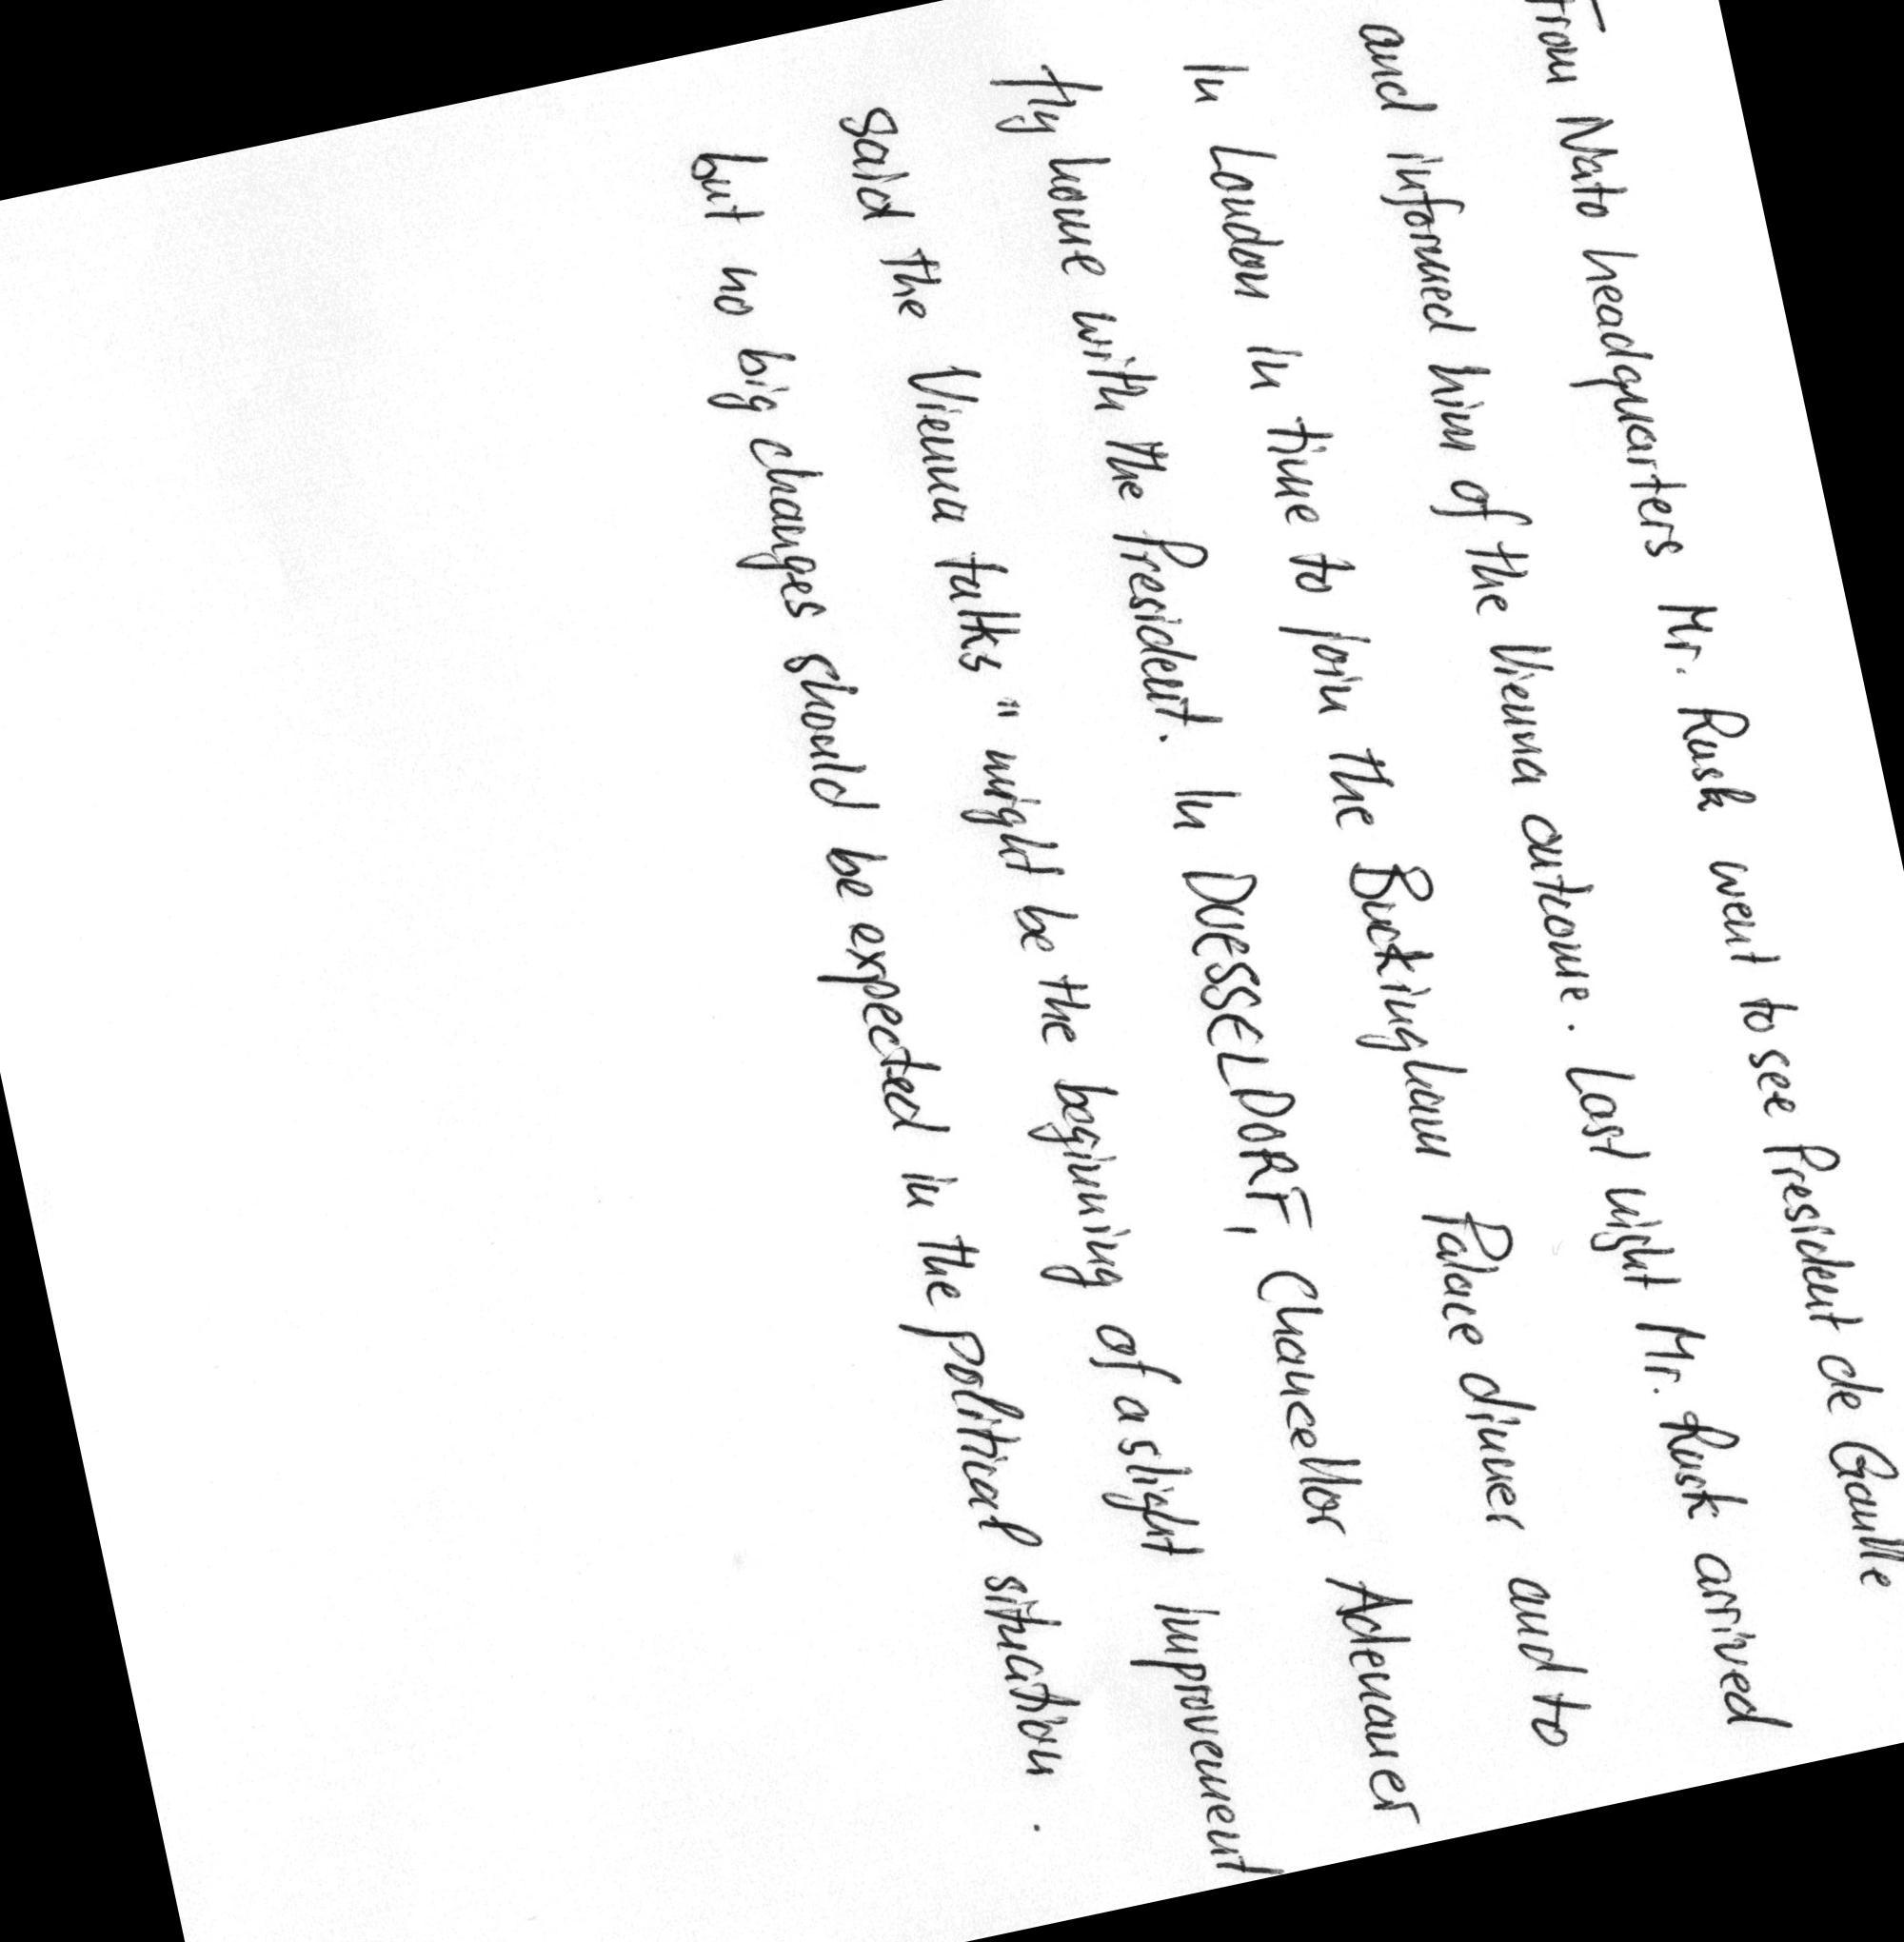 From Nato headquarters Mr. Rusk went to see President de Gaulle
and informed him of the Vienna outcome. Last night Mr. Rusk arrived
in London in time to join the Buckingham Palace dinner and to
fly home with the President. In DUESSELDORF, Chancellor Adenauer
said the Vienna talks " might be the beginning of a slight improvement
but no big changes should be expected in the political situation.